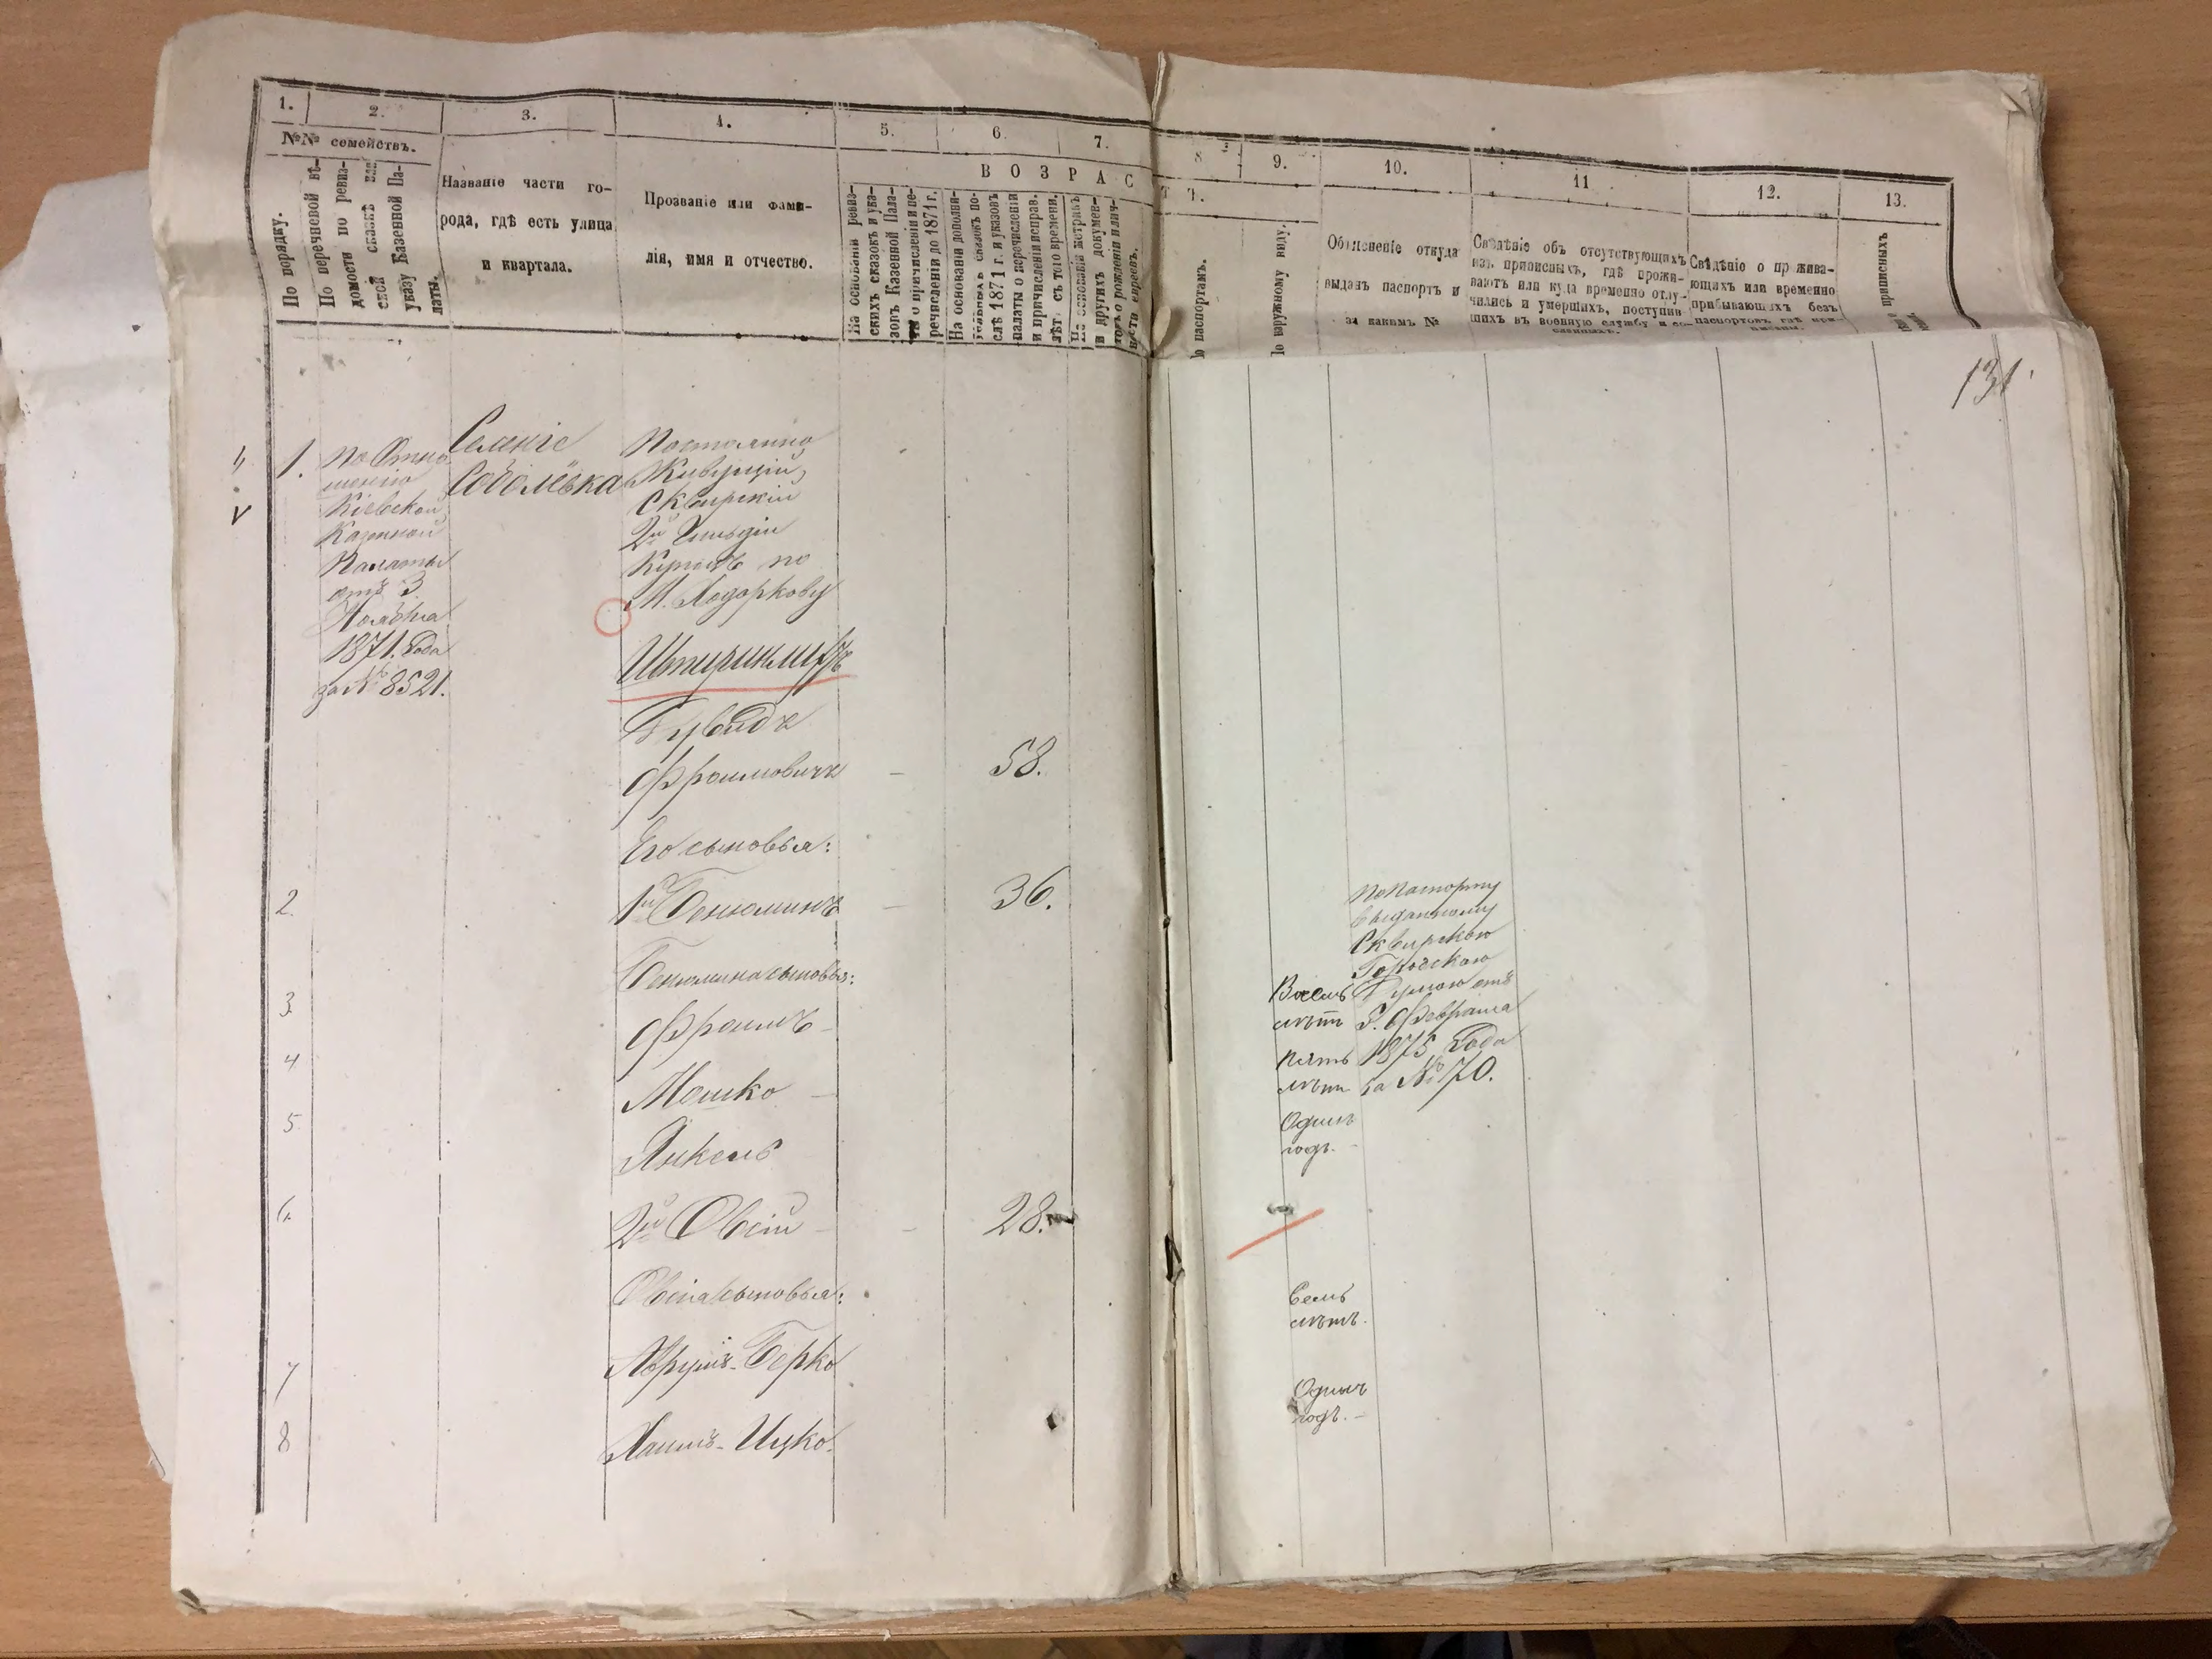 1.
2.
3.
4.
5.
6.
7.
8
9.
10.
11
12.
13.
№№ семействъ.
По порядку.
По перечневой вѣ-
домости по ревиз-
ской сказкѣ или
указу Казенной Па-
латы.
Названіе части го-
рода, гдѣ есть улица
и квартала.
Прозваніе или фами-
лія, имя и отчество.
ВОЗРАС
ТЪ.
На основаніи ревиз-
скихъ сказокъ и ука-
зовъ Казенной Пала-
ты о причисленіи и пе-
речисленіи до 1871 г.
На основаніи дополни-
тельныхъ сказокъ по-
слѣ 1871 г. и указовъ
палаты о перечисленіи
и причисленіи исправ.
лѣтъ съ того времени.
На основаніи метрикъ
и других докумен-
товъ о рожденіи и лич-
ности евреевъ.
По паспортамъ.
По наружному виду.
Объясненіе откуда
выданъ паспортъ и
за какимъ №
Свѣдѣніе объ отсутствующихъ
изъ приписныхъ, гдѣ прожи-
ваютъ или куда временно отлу-
чились и умершихъ, поступив-
шихъ въ военную службу и со-
Свѣдѣніе о прожива-
ющихъ или временно
прибывающихъ безъ
паспортовъ
приписныхъ
131.
1.
По Отно
шенію
Кіевской
Казенной
Палаты
отъ 3
Ноября
1871. Года
за № 8521.
Селеніе
Соболевка
Постоянно
Живущій,
Сквирскій
2й Гильдіи
Купецъ по
М. Ходоркову
Дувидъ
Фроимовичъ – 58.
Его сыновья:
2. 1й Бенюминъ – 36.
Бенюмина сыновья:
3. Фроимъ –
4 Мошко –
5 Янкель
6. 2й Овсій – 28.
Овсія сыновья:
7 Аврумъ-Берко
8 Хаимъ-Ицко.
По Паспорту
выданному
Сквирскою
Городскою
Думою отъ
Февраля
1875 Года
за № 170.
Восемь
лѣтъ
Пять
лѣтъ
Одинъ
годъ. –
Семь
лѣтъ.
Одинъ
годъ. –